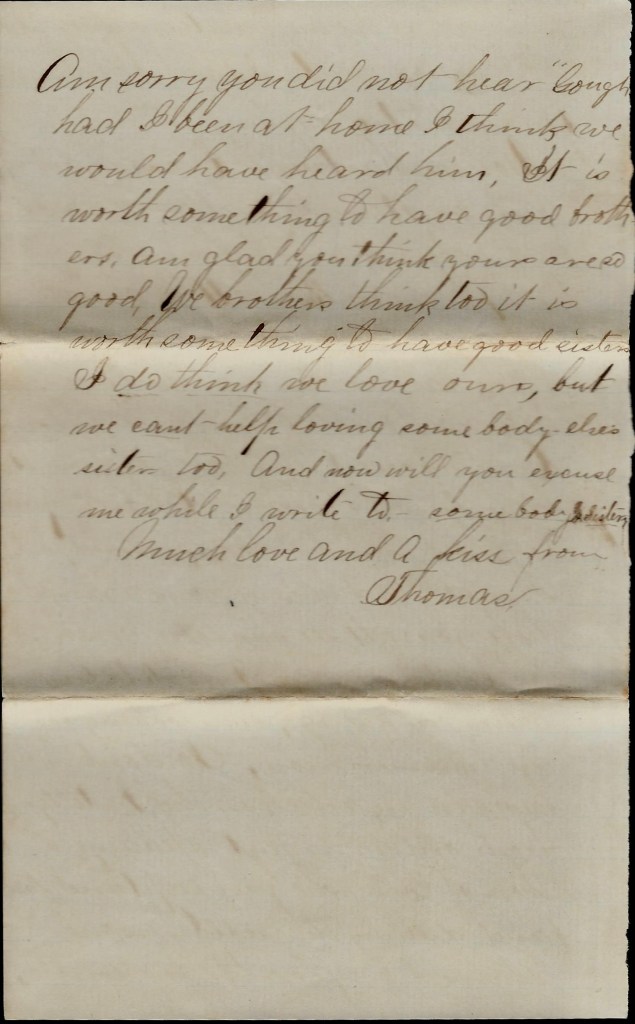 Am sorry you did not hear "Gough
had I been at home I think we
would have heard him, It is
worth something to have good broth-
ers. am glad you think yours are so
good, We brothers think too it is
worth something to have good sisters
I do think we love ours, but
we cant help loving some body elses
sister too, And now will you excuse
me while I write to - some bodys sister,
Much love and a kiss from
Thomas